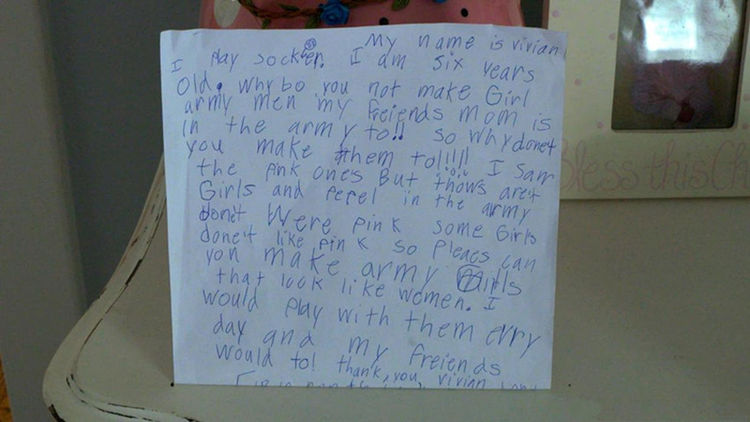 My name is vivian
I play socker. I am six years
old. why do you not make Girl
army men my freiends mom is
in the army to!! so why donet
you make them to!!!!! I saw
the pink ones But thows aret
Girls and pepel in the army
donet Were pink some Girls
donet like pink so pleacs can
you make army Girls
that look like women. I
would play with them erry
day and my freiends
would to! thank, you vivian
Bless this Ch